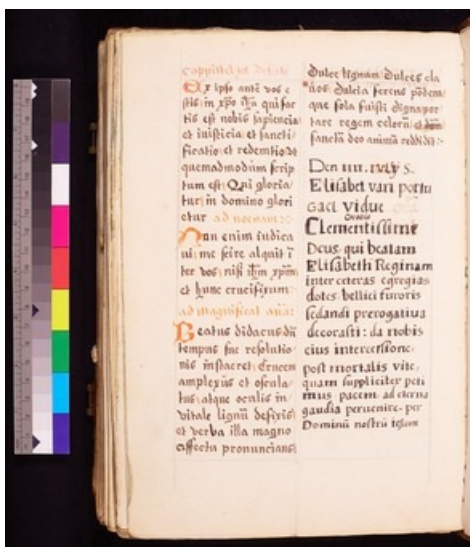 Ex ipso autē vos e
stis in xpo ihū qui fac
tus est nobis sapiencia
et iusticia et sancti
ficatio et redemtio ut
quemadmodum scrip
tum est Qui gloria
tur in domino glori
etur ad nonam
Non enim iudica
ui me scire aliquit ī
ter vos nisi ihm xpm
et hunc crucifixum
ad magnificat aña
Beatus didacus dū
tempus sue resolutio
nis instaret Crucem
amplexus et oscula
tus atque oculis in
vitale lignū defixis
et verba illa magno
affectu pronuncians
Dulce lignum Dulces cla
uos Dulcia ferens pōdera
que sola fuisti digna por
tare regem celorū et
sanctā deo animā reddidit
Den iiii. S.
Elisabet van portu
gael vidue
Oratio
Clementissime
Deus qui beatam
Elisabeth Reginam
inter ceteras egregias
dotes bellici furoris
sedandi prerogatiua
decorasti : da nobis
eius intercessione
post mortalis vite,
quam suppliciter peti
mus pacem, ad eterna
gaudia peruenire. per
Dominū nostrū Iesum